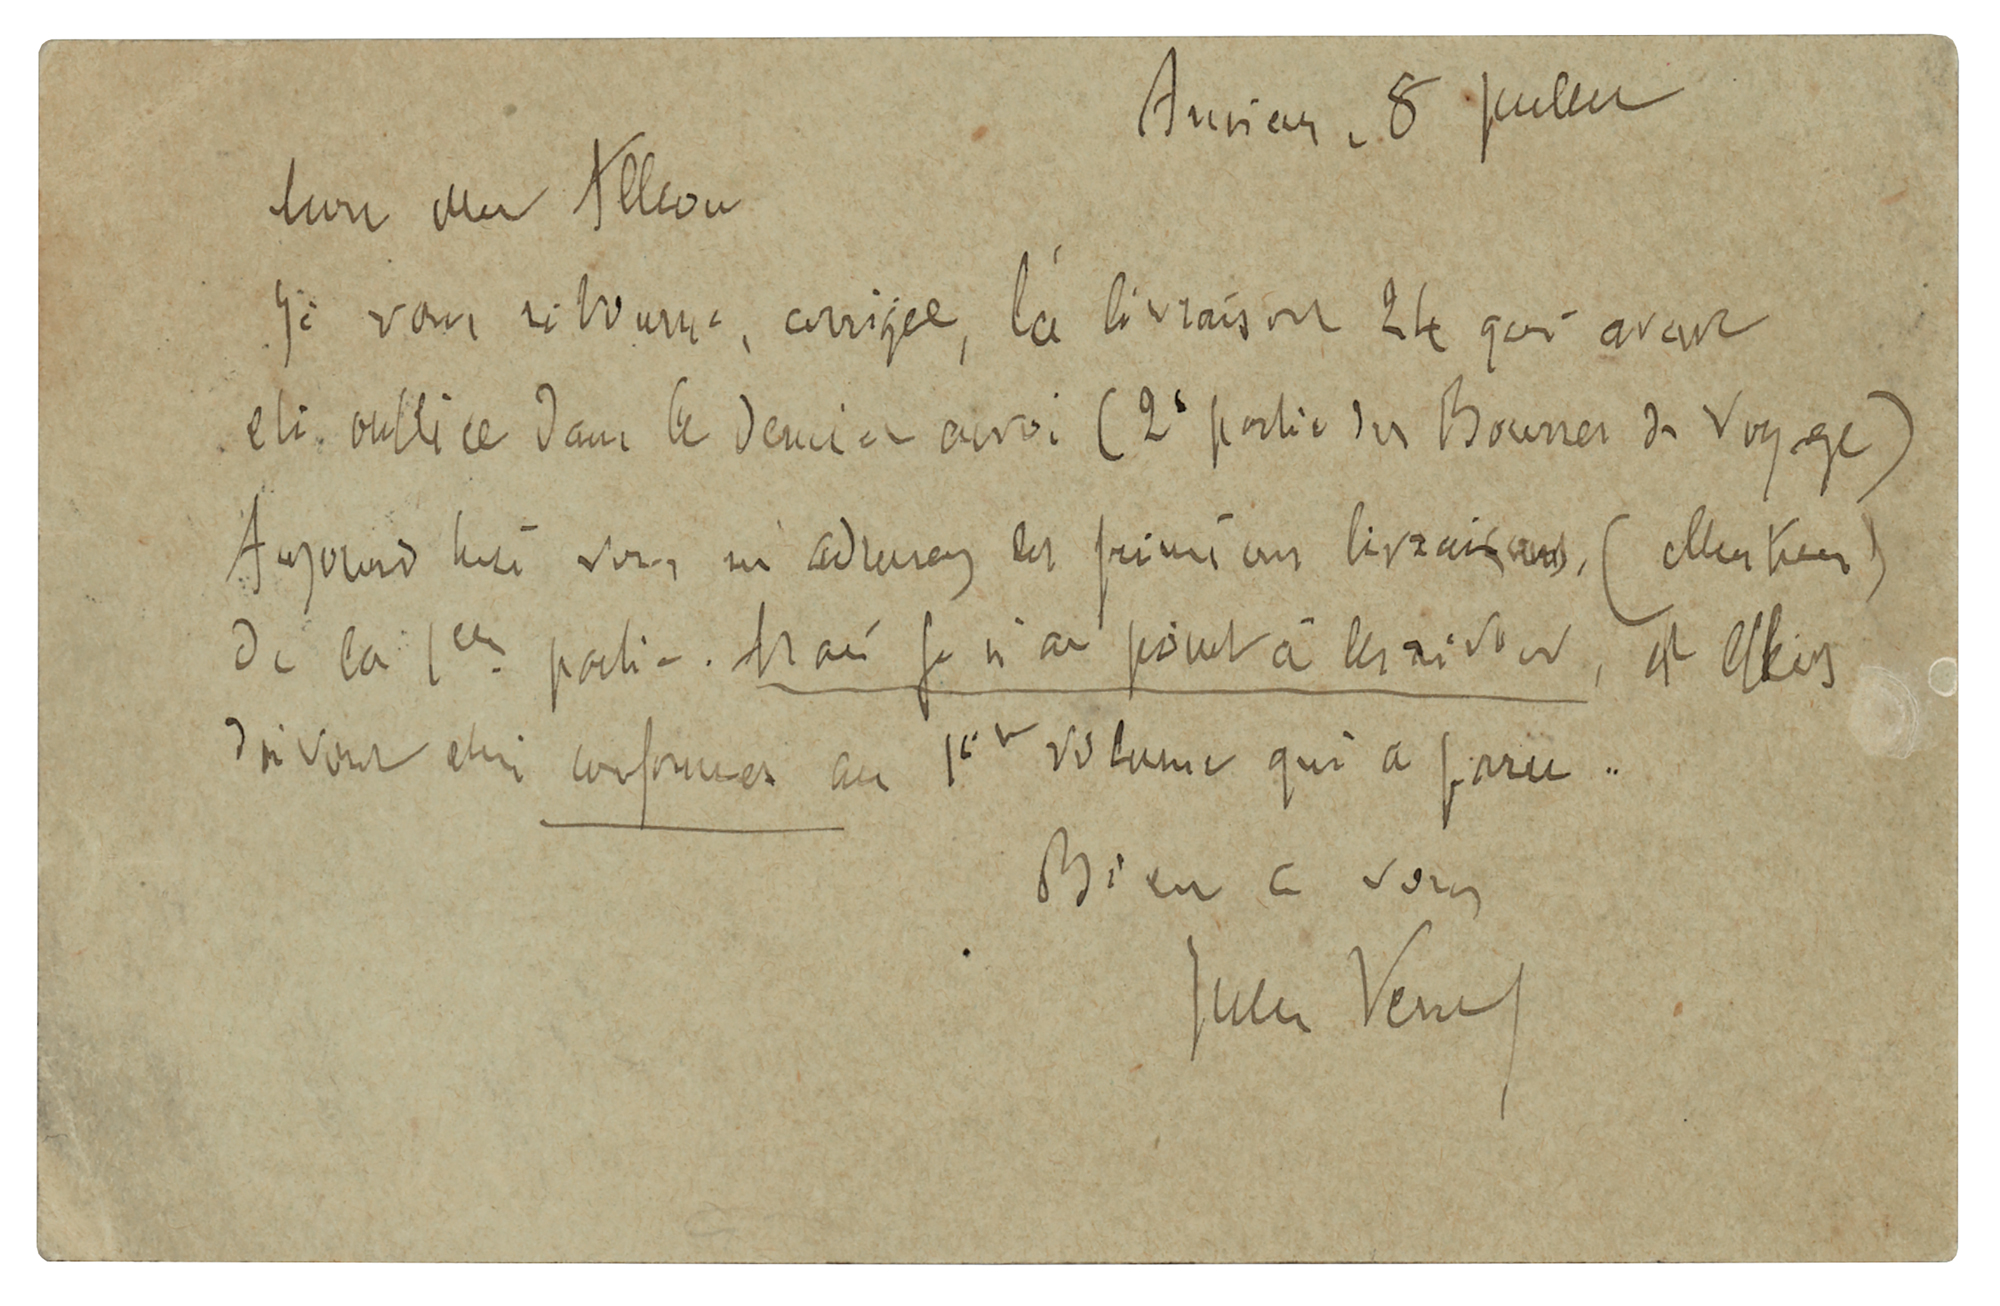 Amiens, 8 juillet
Mon cher
Je vous retourne, corrigée, la livraison 24 qui avait
été oubliée dans le dernier envoi (2e partie des Bourses de Voyage)
Aujourd'hui vous m'adressez les premières livraisons,
de la 1ère partie. Mais je n'ai point à les revoir, et elles
doivent être conformes au 1er volume qui a paru.
Bien à vous
Jules Verne